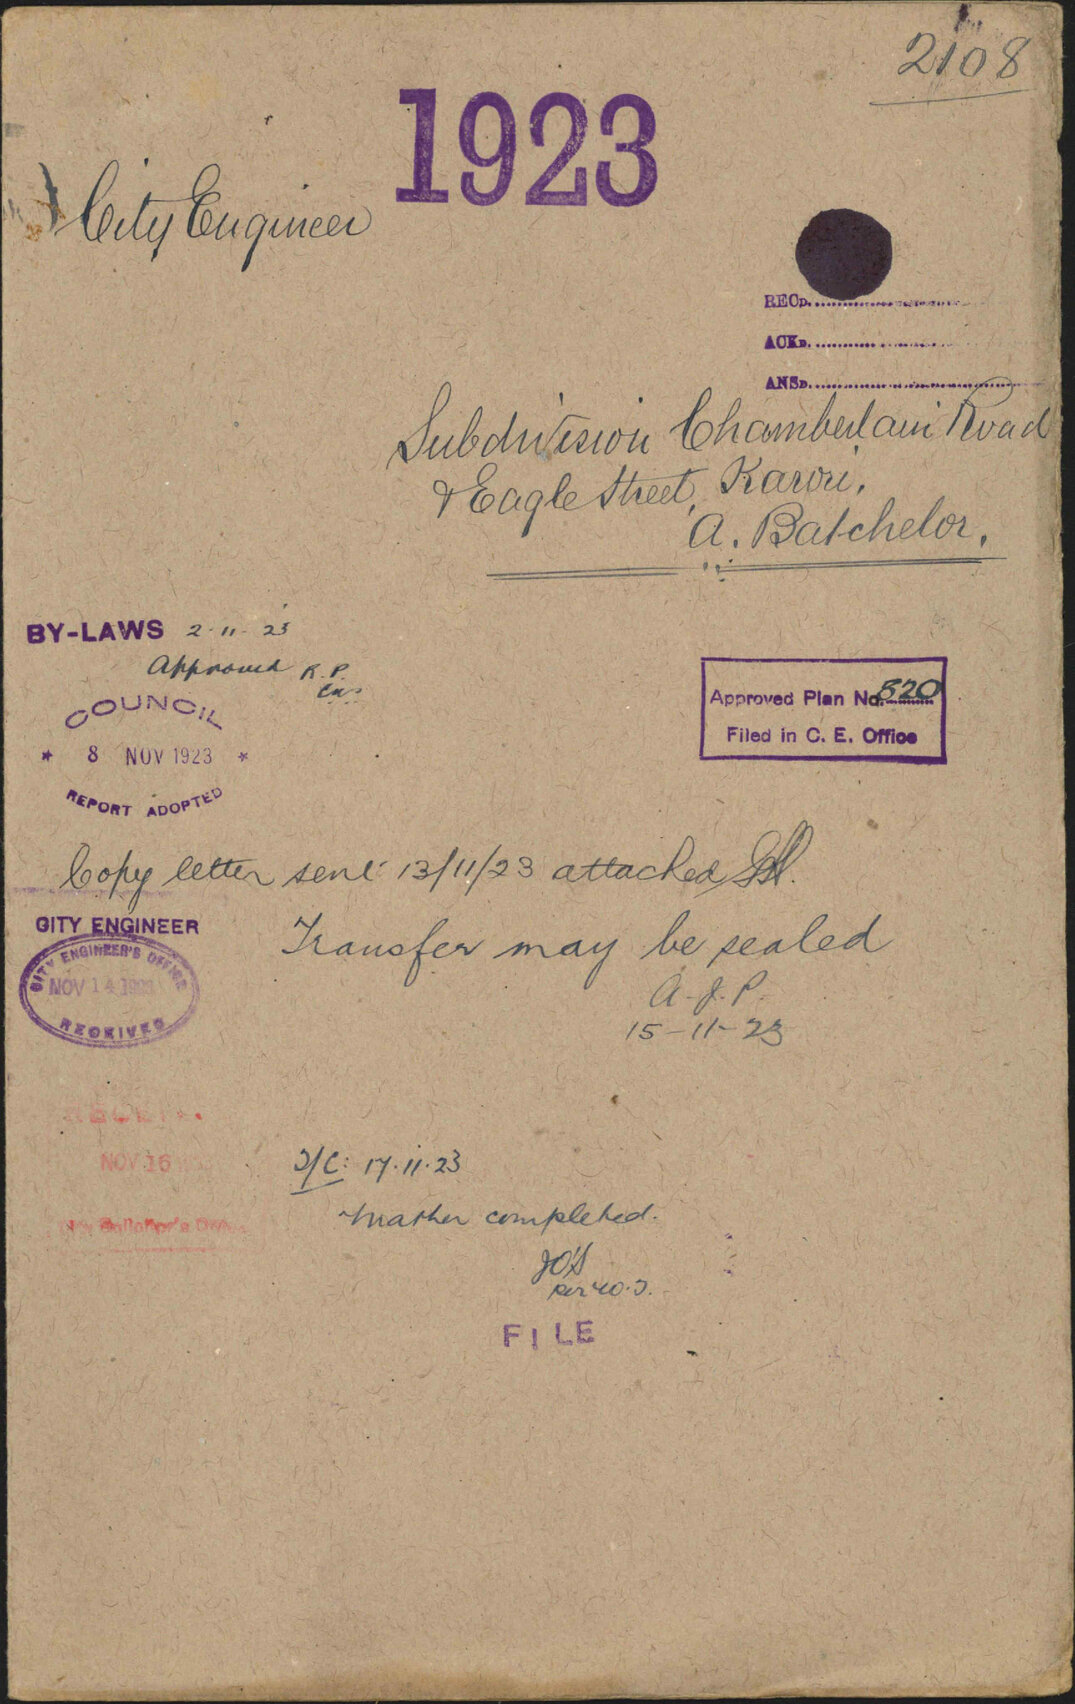 2108
1923
City Engineer
RECD.
ACKD.
ANSD.
Subdivision Chamberlain Road
& Eagle Street, Karori.
A. Batchelor.
BY-LAWS 2-11-23
Approved R.P.
COUNCIL
* 8 NOV 1923 *
REPORT ADOPTED
Approved Plan No. 820
Filed in C. E. Office
Copy letter sent 13/11/23 attached
CITY ENGINEER
CITY ENGINEER'S OFFICE
NOV 14 1923
RECEIVED
Transfer may be sealed
A.J.P.
15-11-23
NOV 16
17.11.23
Matter completed.
JO'S
FILE